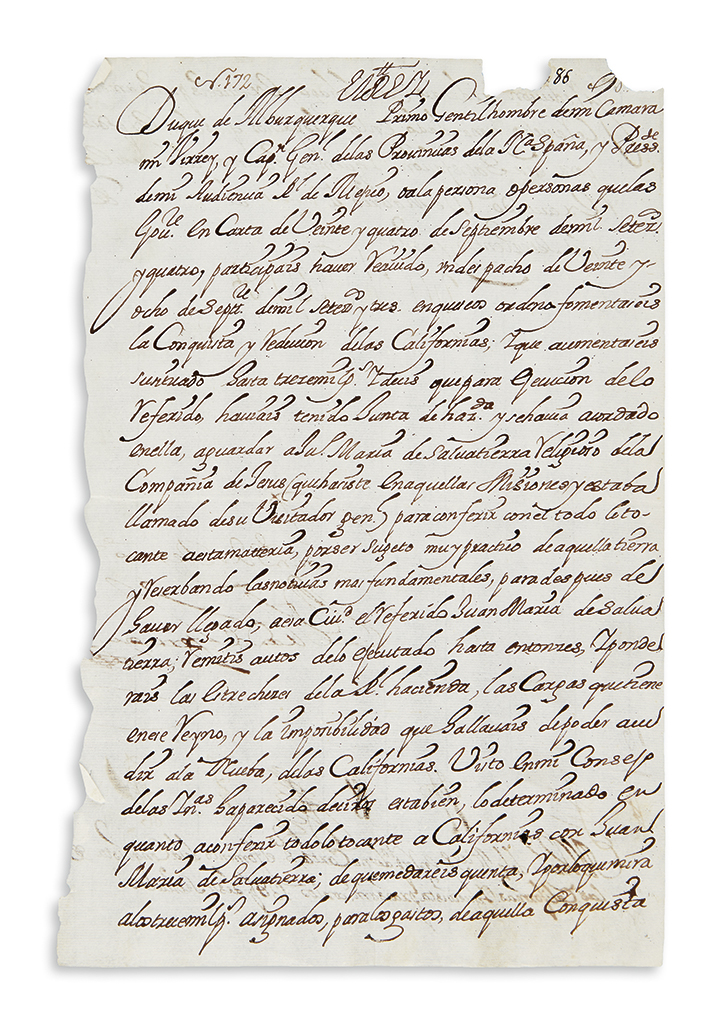 N. 172 86
Duque de Alburquerque Primo Gentilhombre demi Camara
mi Virrey, y Capn. Genl. delas Provincias dela Na. España, y Presde.
demi Audiencia Rl. de Mexico, o ala persona o personas que las
Goure. En Carta de Veinte y quatro de Septiembre demil Seteztos.
y quatro, participais haver Recivido, un despacho de Veinte y
ocho de Septre. demil Setezos. y tres enque os ordeno fomentareis
la Conquista y Reducion delas Californias; Y que aumentareis
situado hasta treze mil ps. Y decis que para Ejecucion de lo
Referido, haviais tenido Junta de hazda. y se havia acordado
en ella, aguardar a Jun. Maria de Salvatierra Religioso dela
Compañia de Jesus (que hasiste en aquellas Misiones y estaba
llamado de su Visitador genl.) para conferir con el todo lo to-
cante a esta matteria, por ser sugeto muy practico de aquella tierra
y Reserbando las noticias mas fundamentales, para despues de
haver llegado, a esa Ciud. el Referido Juan Maria de Salva
tierra; Remitis autos de lo ejecutado hasta entonzes, Y ponde
rais las estrecheces de la Rl. hacienda, las Cargas que tiene
en ese Reyno, y la imposibilidad que hallavais de poder acu
dir a la Nueba, delas Californias. Visto en mi Consejo
delas Inas. ha parecido deciros esta bien, lo determinado en
quanto a conferir todo lo tocante a Californias con Juan
Maria de Salvatierra, de que me dareis quenta, Y por lo que mira
a los treze mil ps. asignados, para los gastos, de aquella Conquista